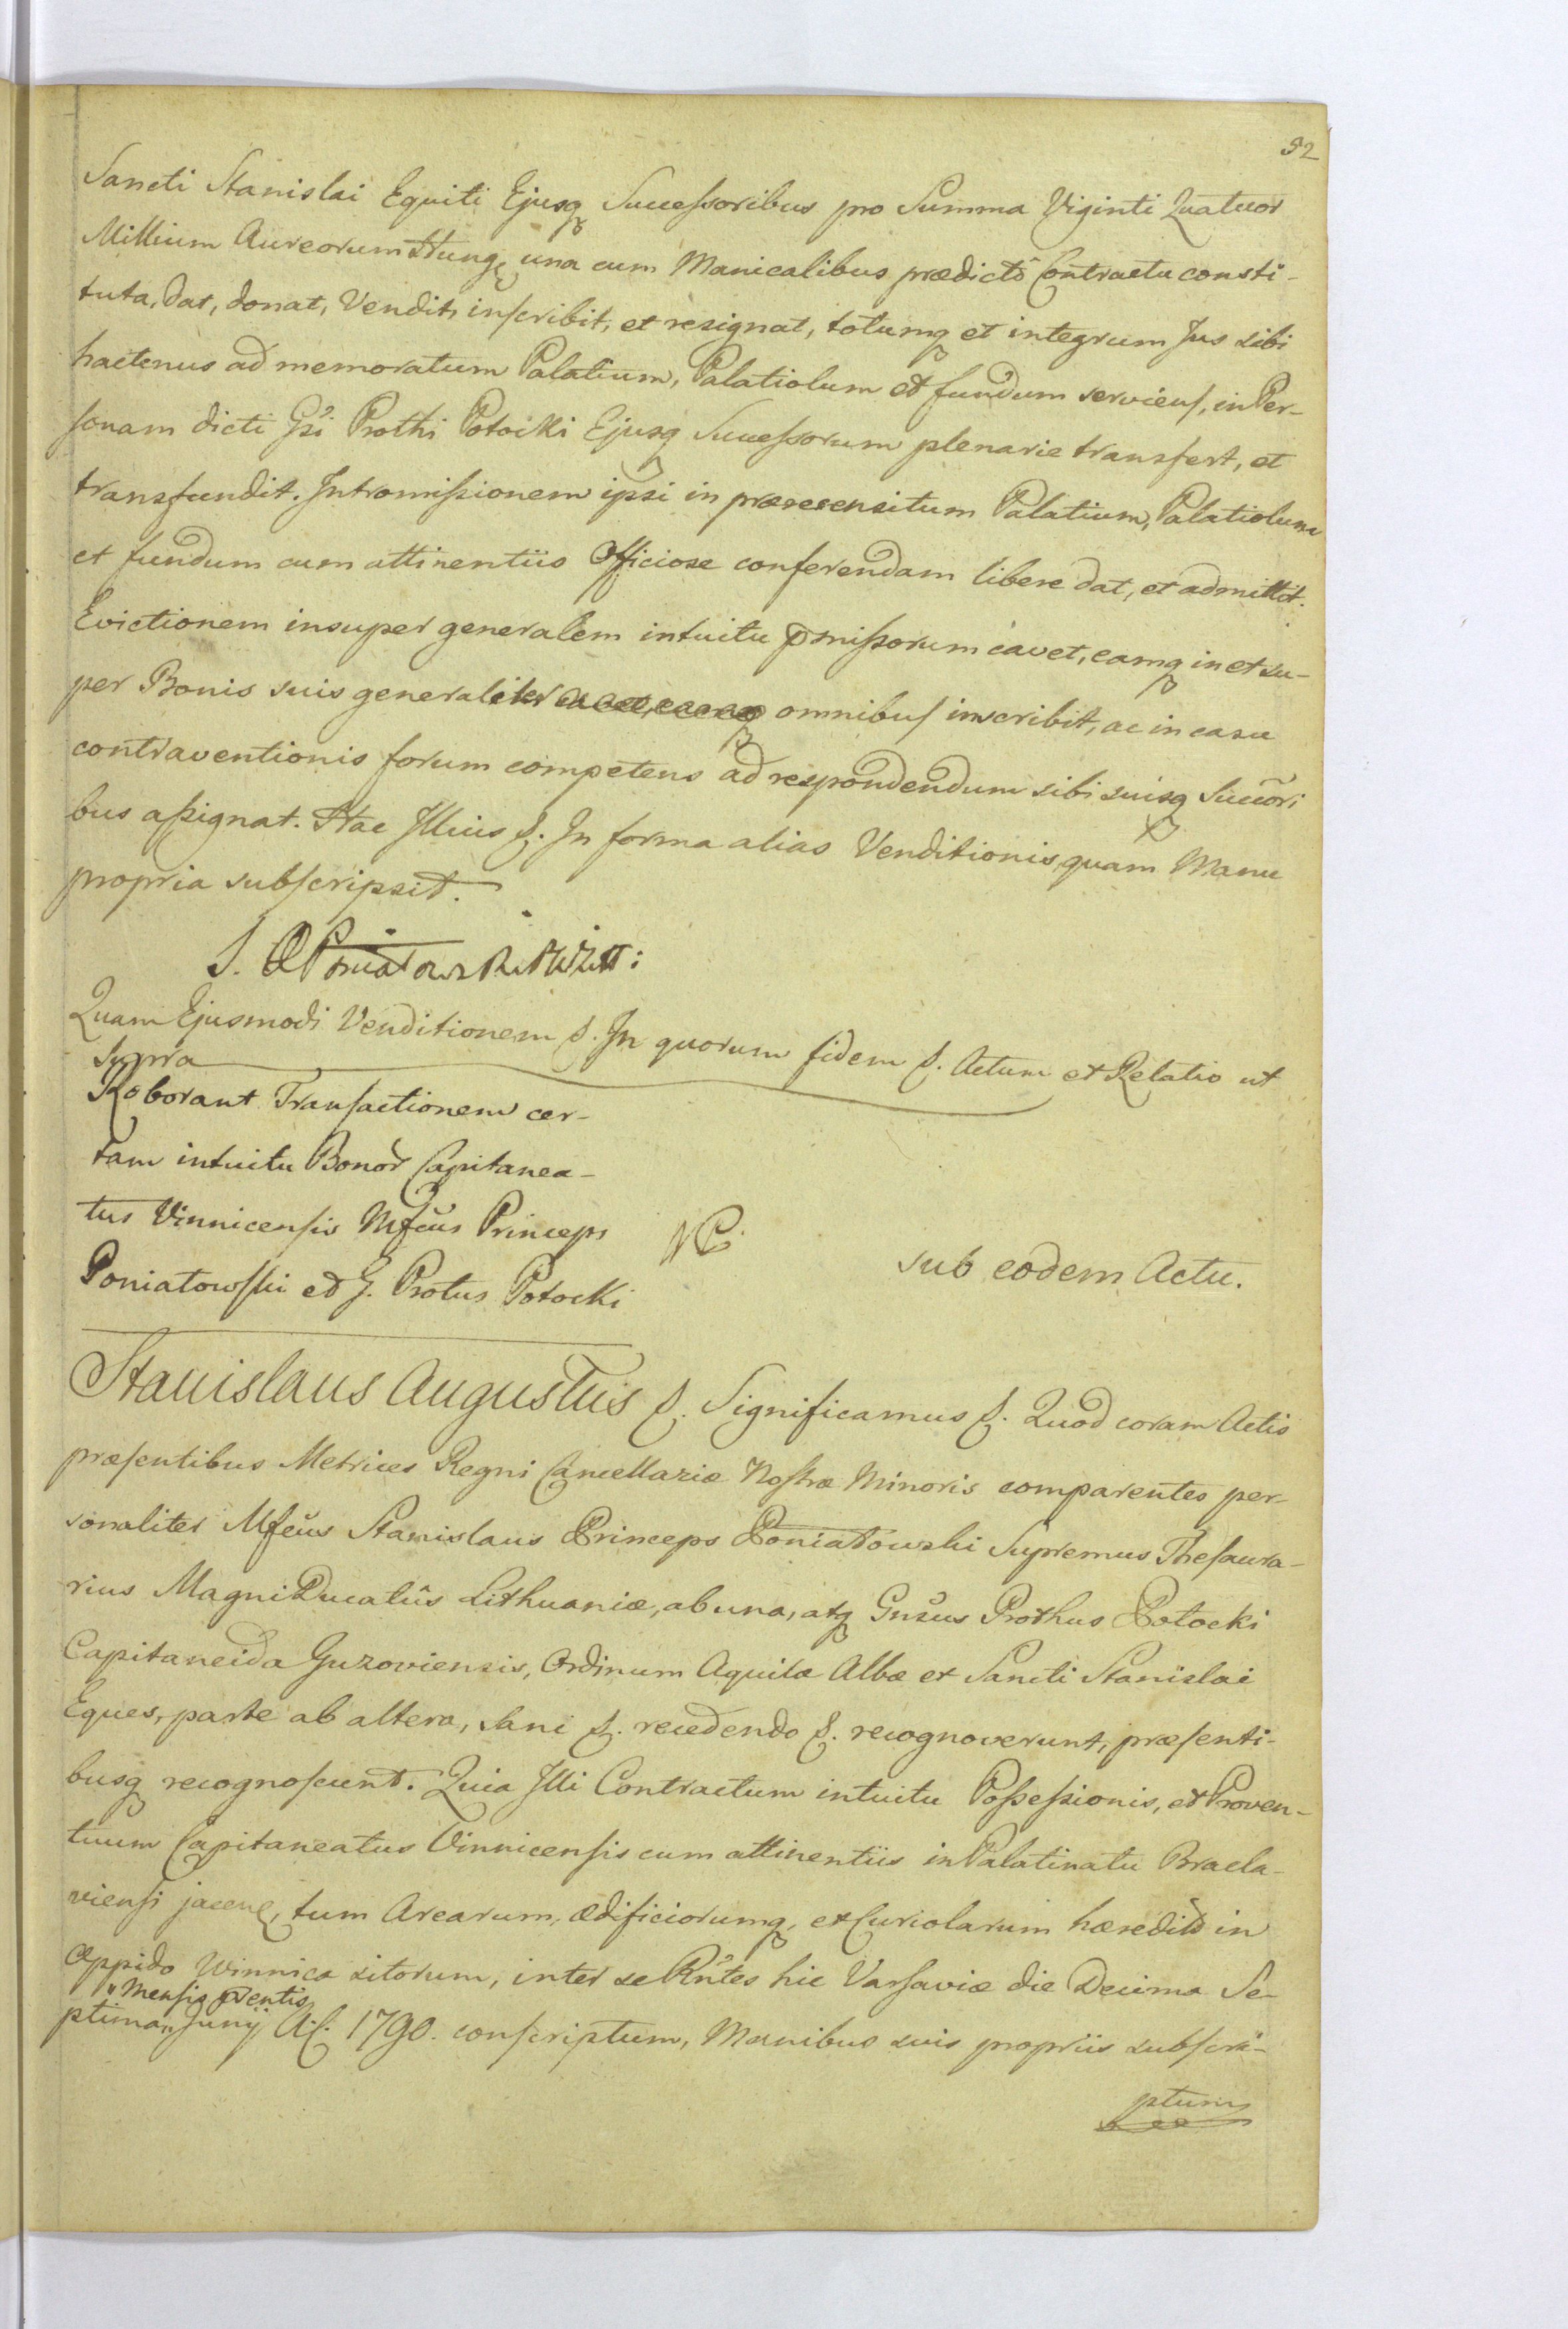 52
Sancti Stanislai Equiti Ejusq Successoribus pro Summa Viginti Quatuor
Millium Aureorum Hung, una cum Manicalibus prædictô Contractu consti-
tuta, dat, donat, Vendit, inscribit, et resignat, totumq et integrum Jus sibi
hactenus ad memoratum Palatium, Palatiolum et fundum serviens, in Per-
sonam dicti Gsi Prothi Potocki Ejusq Successorum plenarie transfert, et
transfundit. Intromissionem ipsi in prærecensitum Palatium, Palatiolum
et fundum cum attinentiis Officiose conferendam libere dat, et admittit.
Evictionem insuper generalem intuitu pmissorum cavet, eamq in et su-
per Bonis suis generaliter omnibus inscribit, ac in casu
contraventionis forum competens ad respondendum sibi suisq Succōri
bus assignat. Hac Illius &. In forma alias Venditionis, quam Manu
propria subscripsit.
S. Poniatowski
Quam Ejusmodi Venditionem &. In quorum fidem &. Actum et Relatio ut
supra
Roborant Transactionem cer-
tam intuitu Bonor Capitanea-
tus Vinnicensis Mfcus Princeps
Poniatowski et G. Protus Potocki
sub eodem Actu.
Stanislaus Augustus &. Significamus &. Quod coram Actis
præsentibus Metrices Regni Cancellariæ Nostræ Minoris comparentes per-
sonaliter Mfcus Stanislaus Princeps Poniatowski Supremus Thesaura-
rius Magni Ducatûs Lithuaniæ, ab una, atq Gnsus Prothus Potocki
Capitaneida Guzoviensis, Ordinum Aquilæ Albæ et Sancti Stanislai
Eques, parte ab altera, Sani &. recedendo &. recognoverunt, præsenti-
busq recognoscunt. Quia Illi Contractum intuitu Possessionis, et Proven-
tuum Capitaneatus Vinnicensis cum attinentiis in Palatinatu Bracla-
viensi jacen, tum Arearum, ædificiorumq, et Curiolarum hæredit in
Oppido Winnica sitorum, inter se Rntes hic Varsaviæ die Decima Se-
"Mensis pventis
ptima,, Junij A. C. 1790. conscriptum, Manibus suis propriis subscri-
ptum